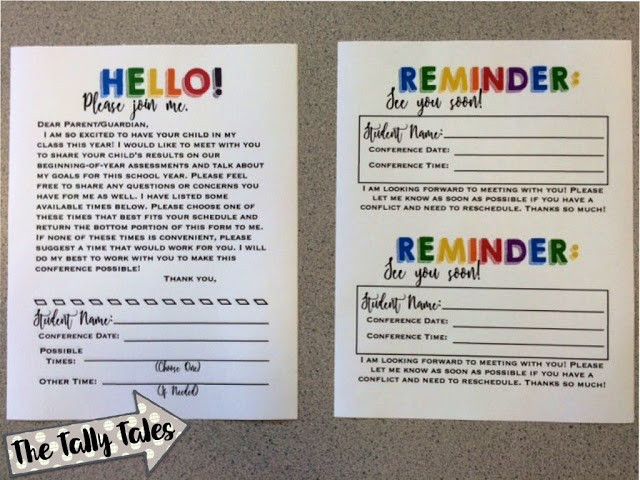 HELLO!
Please join me.
DEAR PARENT/GUARDIAN,
I AM SO EXCITED TO HAVE YOUR CHILD IN MY
CLASS THIS YEAR! I WOULD LIKE TO MEET WITH YOU
TO SHARE YOUR CHILD'S RESULTS ON OUR
BEGINNING-OF-YEAR ASSESSMENTS AND TALK ABOUT
MY GOALS FOR THIS SCHOOL YEAR. PLEASE FEEL
FREE TO SHARE ANY QUESTIONS OR CONCERNS YOU
HAVE FOR ME AS WELL. I HAVE LISTED SOME
AVAILABLE TIMES BELOW. PLEASE CHOOSE ONE OF
THESE TIMES THAT BEST FITS YOUR SCHEDULE AND
RETURN THE BOTTOM PORTION OF THIS FORM TO ME.
IF NONE OF THESE TIMES IS CONVENIENT, PLEASE
SUGGEST A TIME THAT WOULD WORK FOR YOU. I WILL
DO MY BEST TO WORK WITH YOU TO MAKE THIS
CONFERENCE POSSIBLE!
THANK YOU,
Student Name:
CONFERENCE DATE:
POSSIBLE
TIMES:
(Choose One)
OTHER TIME:
(If Needed)
The Tally Tales
REMINDER:
See you soon!
Student Name:
CONFERENCE DATE:
CONFERENCE TIME:
I AM LOOKING FORWARD TO MEETING WITH YOU! PLEASE
LET ME KNOW AS SOON AS POSSIBLE IF YOU HAVE A
CONFLICT AND NEED TO RESCHEDULE. THANKS SO MUCH!
REMINDER:
See you soon!
Student Name:
CONFERENCE DATE:
CONFERENCE TIME:
I AM LOOKING FORWARD TO MEETING WITH YOU! PLEASE
LET ME KNOW AS SOON AS POSSIBLE IF YOU HAVE A
CONFLICT AND NEED TO RESCHEDULE. THANKS SO MUCH!